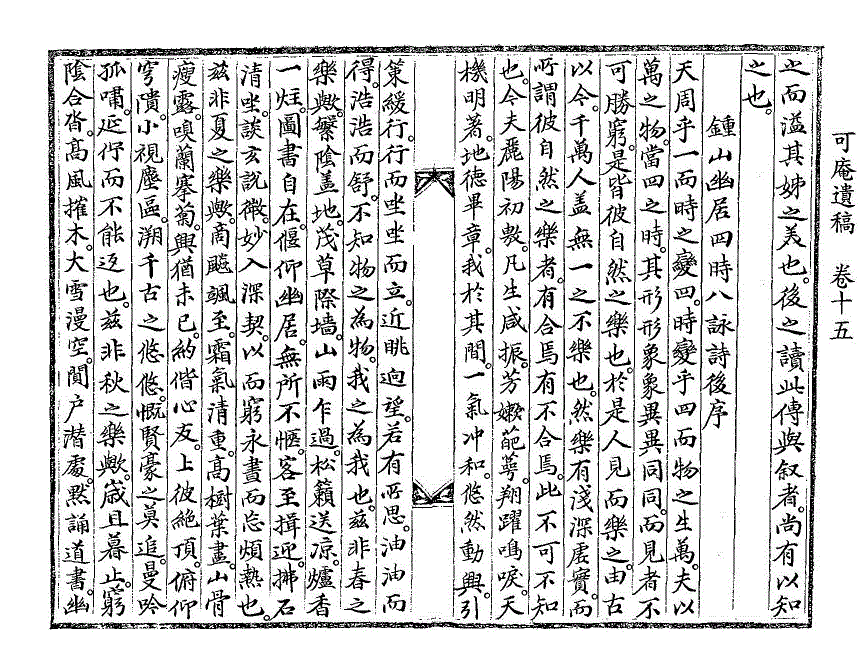 可庵遺稿　卷十五
之而溢其姊之美也。後之讀此傳與叙者。尚有以知
之也。
鍾山幽居四時八詠詩後序
天周乎一而時之變四。時變乎四而物之生萬。夫以
萬之物。當四之時。其形形象象異異同同。而見者不
可勝窮。是皆彼自然之樂也。於是人見而樂之。由古
以今。千萬人盖無一之不樂也。然樂有淺深虛實。而
所謂彼自然之樂者。有合焉有不合焉。此不可不知
也。今夫麗陽初敷。凡生咸振。芳嫩葩萼。翔躍鳴唳。天
機明著。地德畢章。我於其間。一氣冲和。悠然動興。引
策緩行。行而坐坐而立。近眺逈望。若有所思。油油而
得。浩浩而舒。不知物之為物。我之為我也。茲非春之
樂歟。繁陰盖地。茂草際墻。山雨乍過。松籟送凉。爐香
一炷。圖書自在。偃仰幽居。無所不愜。客至揖迎。拂石
清坐。談玄說微。妙入深契。以而窮永晝而忘煩熱也。
茲非夏之樂歟。商飈颯至。霜氣清重。高樹葉盡。山骨
瘦露。嗅蘭搴菊。興猶未已。約偕心友。上彼絶頂。俯仰
穹隤。小視塵區。溯千古之悠悠。慨賢豪之莫追。曼吟
孤嘯。延佇而不能返也。茲非秋之樂歟。歲且暮止。窮
陰合沓。高風摧木。大雪漫空。閴户潜處。默誦道書。幽